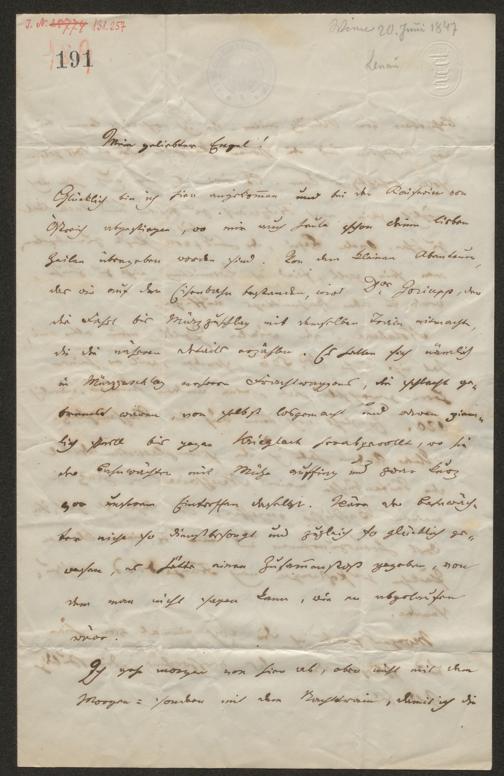 J. N. 18779 131.257
191
Wien 20. Juni 1847
Lenau
Mein geliebter Engel!
Glücklich bin ich hier angekommen und bei der Kaiserin von
Östreich abgestiegen, wo mir auch heute schon deine lieben
Zeilen übergeben worden sind. Von dem kleinen Abenteuer,
das wir auf der Eisenbahn bestanden, wird Dr. der
die Fahrt bis Mürzzuschlag mit demselben Train mitmachte,
dir die näheren Details erzählen. Es hatten sich nämlich
in Mürzzuschlag mehrere Frachtwaggons, die schlecht ge-
bremst waren, von selbst losgemacht und waren ziem-
lich schnell bis gegen Krieglach herabgerollt, wo sie
der Bahnwächter mit Mühe auffing und zwar kurz
vor unserem Eintreffen daselbst. Wäre der Bahnwäch-
ter nicht so dienstbesorgt und zugleich so glücklich ge-
wesen, es hätte einen Zusammenstoß gegeben, von
dem man nicht sagen kann, wie er abgelaufen
wäre.
Ich gehe morgen von hier ab, aber nicht mit dem
Morgen= sondern mit dem Nachttrain, damit ich die